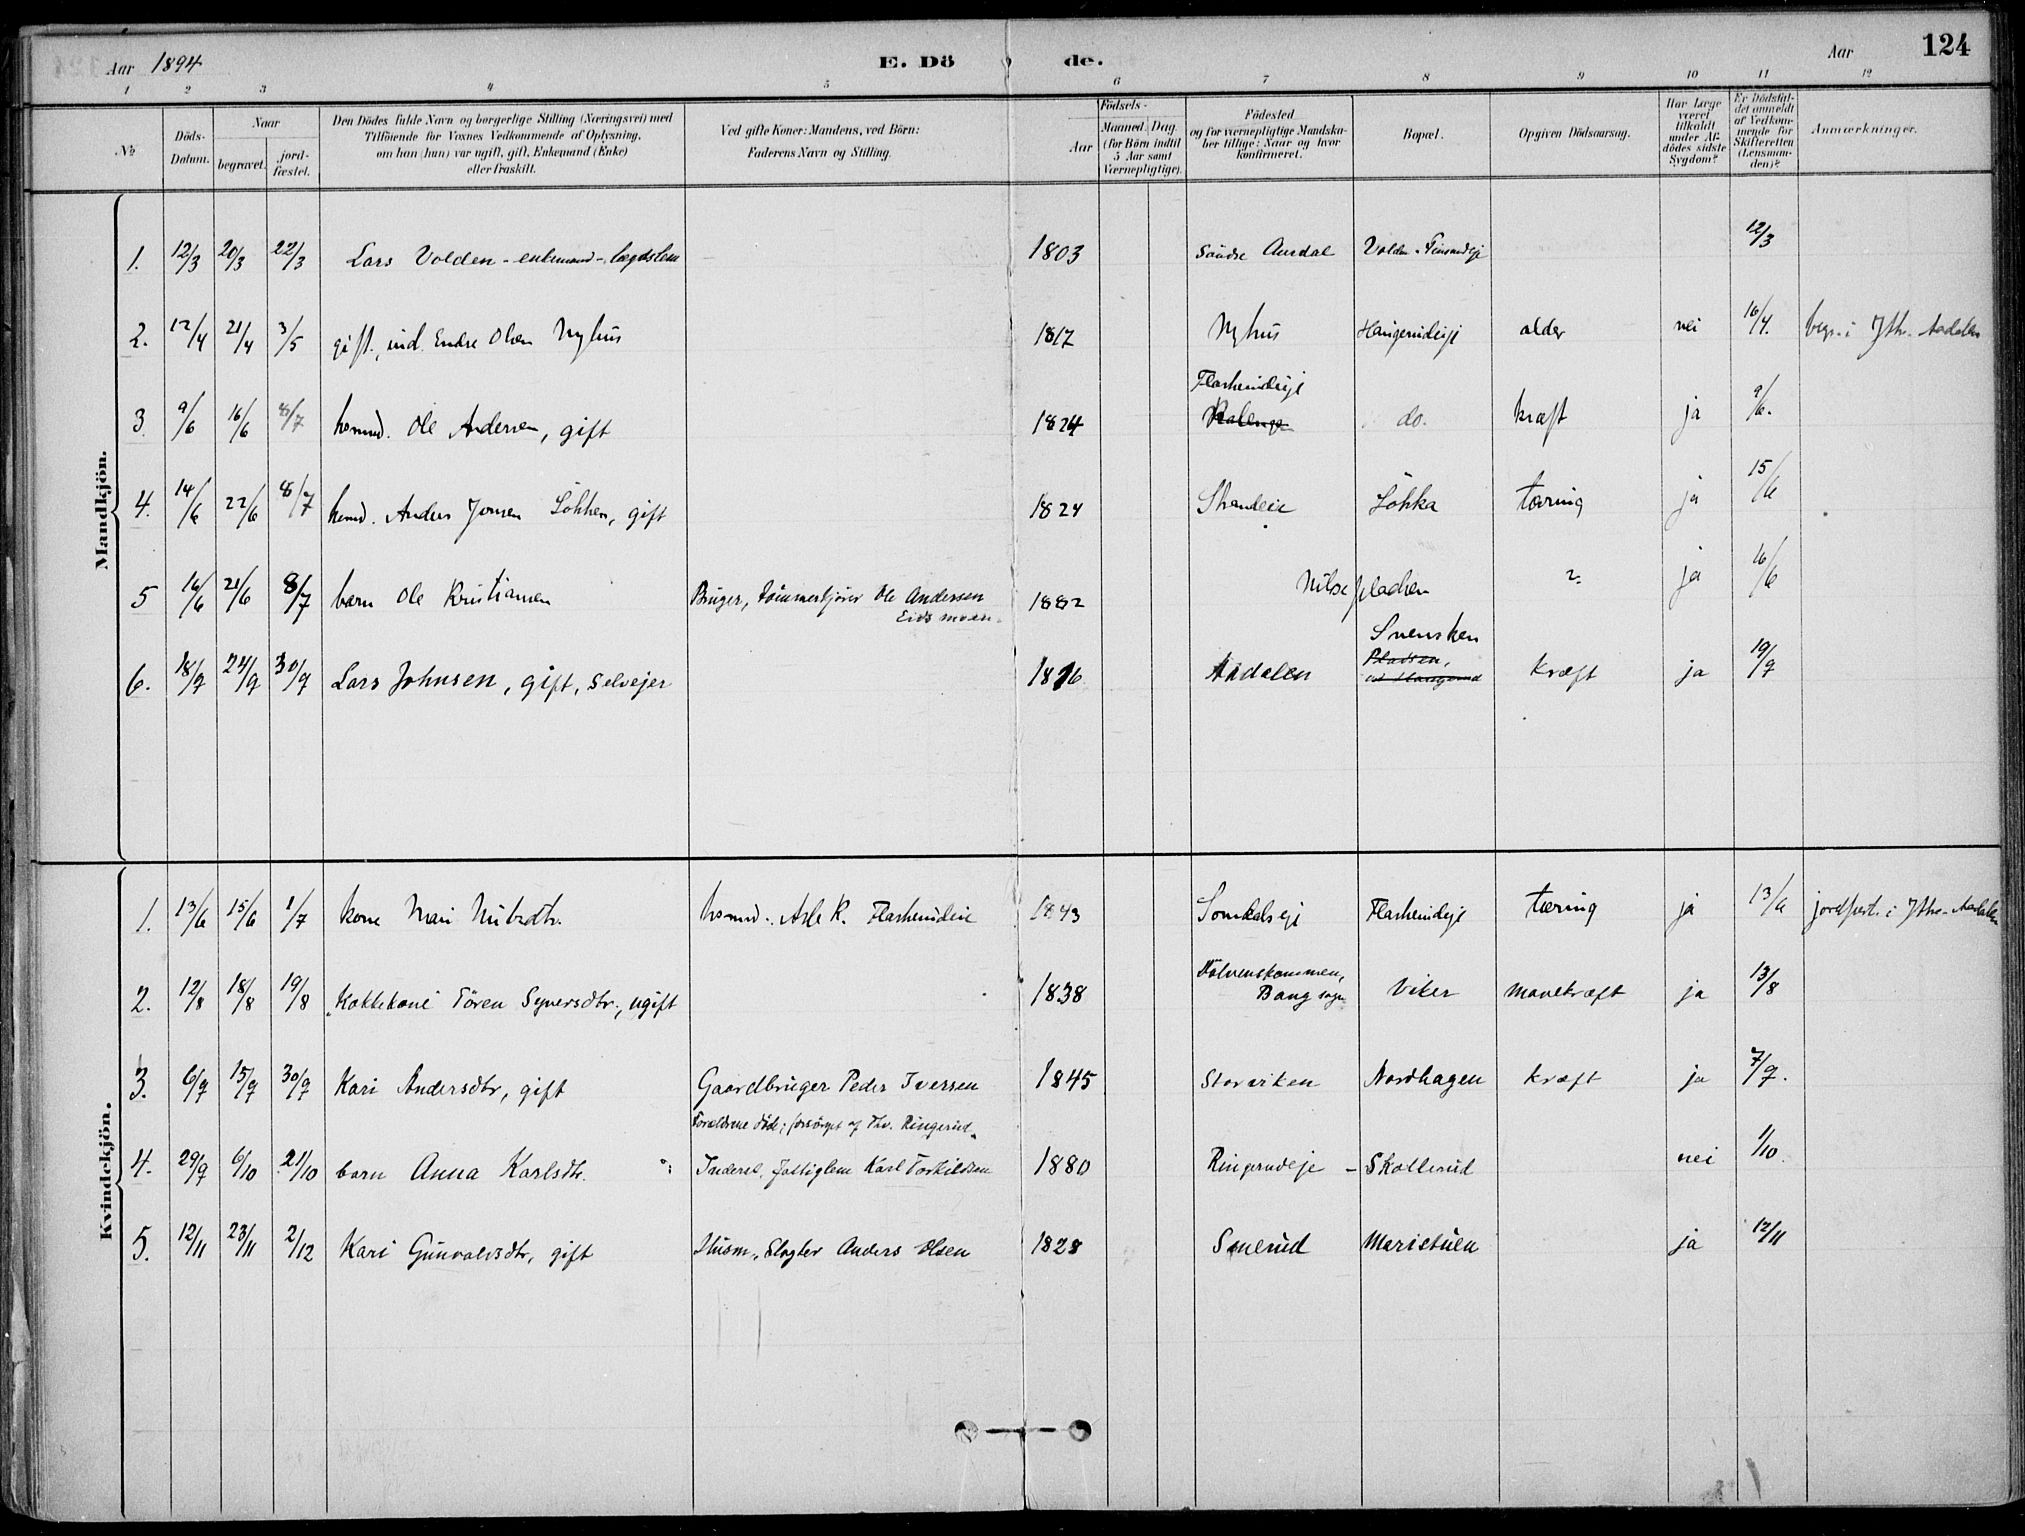 Aar 1894 E. Döde. Aar 124
1 2 3 4 5 6 7 8 9 10 11 12
No
Döds-Datum.
Naar
begravet.
jord-fæstet.
Den Dödes fulde Navn og borgerlige Stilling (Næringsvei) med
Tilföiende for Voxnes Vedkommende af Oplysning,
om han (hun) var ugift, gift, Enkemand (Enke)
eller fraskilt.
Ved gifte Koner: Mandens, ved Börn:
Faderens Navn og Stilling.
Födsels-
Aar
Maaned. Dag
(for Börn indtil
5 Aar samt
Værnepligtige).
Födested
og for værnepligtige Mandska-
ber tillige: Naar og hvor
konfirmeret.
Bopæl.
Opgiven Dödsaarsag.
Har Læge
været
tilkaldt
under Af-
dödes sidste
Sygdom?
Er Dödsfal-
det anmeldt
af Vedkom-
mende for
Skifteretten
(Lensman-
den)?
Anmærkninger.
Mandkjön.
1. 12/3 20/3 22/3 Lars Volden - enkemand - lægdslem 1803 Söndre Aurdal Volden 12/3
2. 12/4 21/4 3/5 gift, ind. Endre Olsen Nyhus 1817 Nyhus Haugerudeije alder nei 16/4. begr. i Ytre Aadalen
3. 9/6 16/6 8/7 Ole Andersen, gift 1824 do. kræft ja 9/6.
4. 14/6 22/6 8/7 Anders Jonsen Løkken, gift 1824 Løkka tæring ja 15/6
5 16/6 21/6 8/7 barn Ole Kristiansen Bruger, tömmerkjörer Ole Andersen
Eidsmoen. 1882 Nilsepladsen ? ja 16/6
Svensken
6. 18/9 24/9 30/9 Lars Johnsen, gift, selvejer 1816 Aadalen Pladsen, kræft ja 19/9
Kvindekjön.
1. 13/6 15/6 1/7 kone Mari Nilsdtr. Asle K. 1843 Somdalseje tæring ja 13/6 jordfæst. i Ytre Aadalen
2. 12/8 18/8 19/8 Kokkekone Tören Syversdtr., ugift 1838 Bang sogn Viker mavekræft ja 13/8
3. 6/9 15/9 30/9 Kari Andersdtr, gift Gaardbruger Peder Iversen 1845 Storviken Nordhagen kræft ja 7/9.
Forældrene döde; forsörget af Thv. Ringerud.
4. 29/9 6/10 21/10 barn Anna Karlsdtr. Inderst, fattiglem Karl Torkildsen 1880 Ringerudeje - Skollerud nei 1/10.
5. 12/11 23/11 2/12 Kari Gunvaldsdtr, gift Husm., Slagter Anders Olsen 1828 Smerud Maristuen ja 12/11